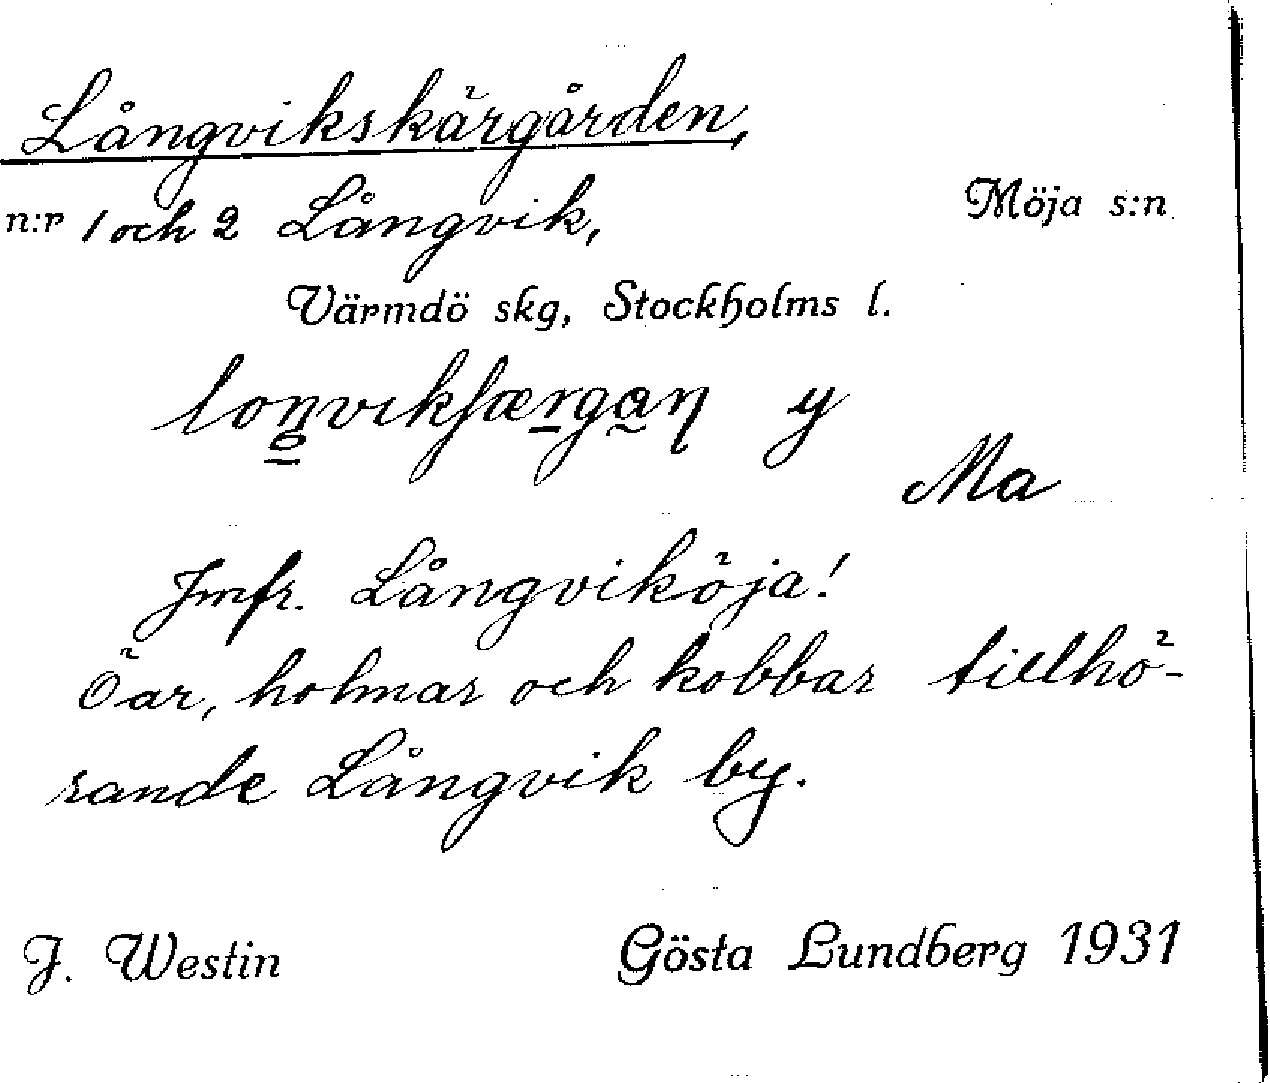 Långvikskärgården,
n:r 1 och 2 Långvik, Möja s:n.
Värmdö skg, Stockholms l.
y
Ma
Jmfr. Långviköja!
Öar, holmar och kobbar tillhö-
rande Långvik by.
J. Westin Gösta Lundberg 1931